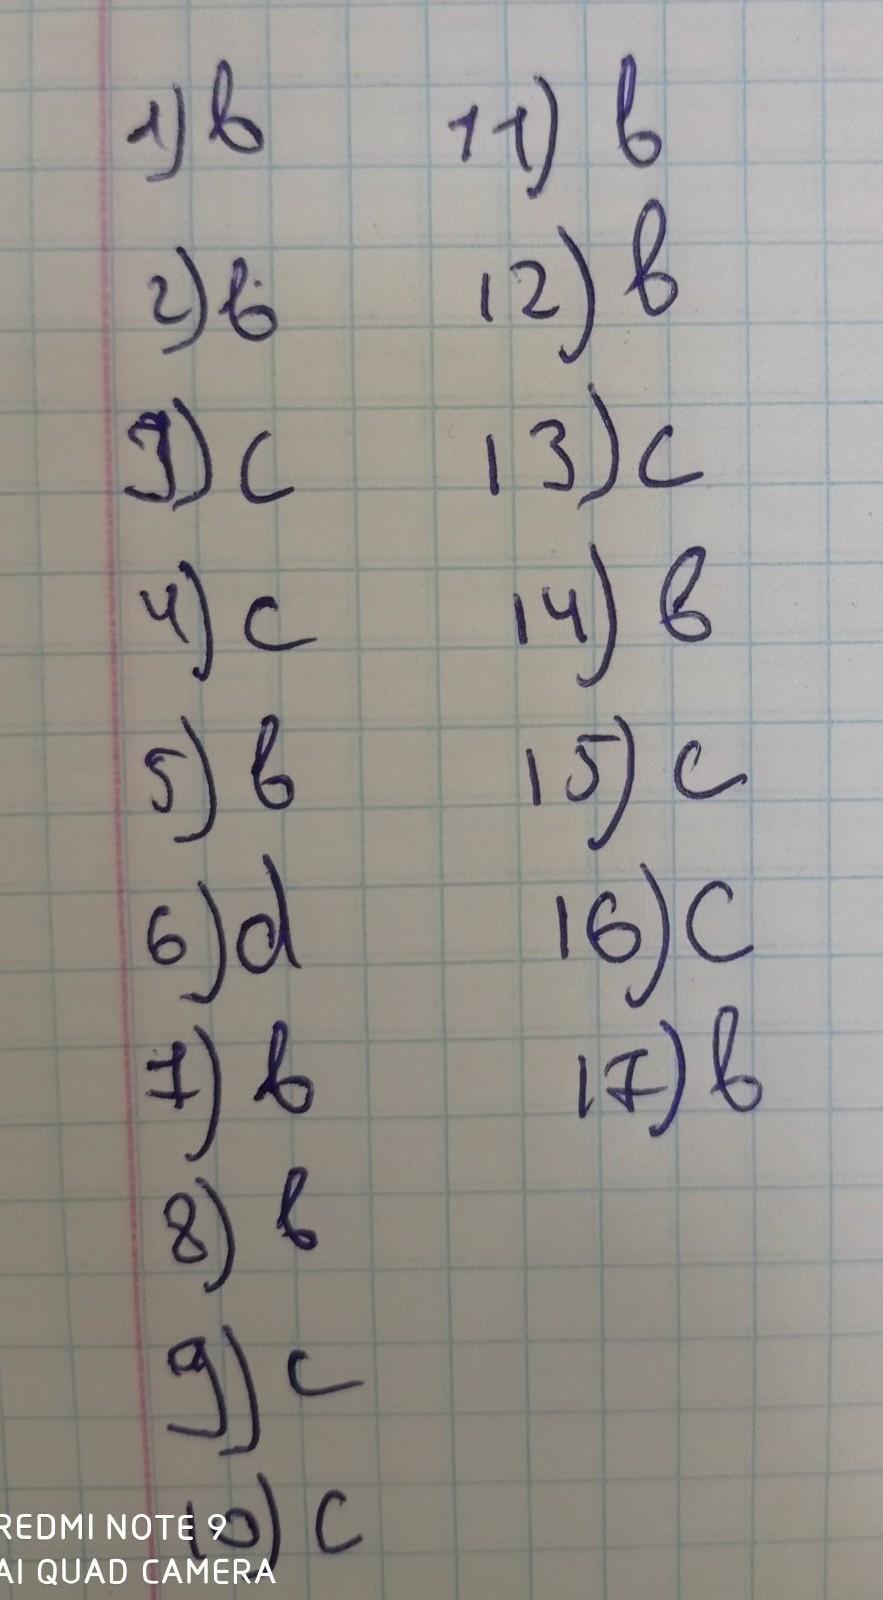 1) b
2) b
3) c
4) c
5) b
6) d
7) b
8) b
9) c
10) c
11) b
12) b
13) c
14) b
15) c
16) c
17) b
REDMI NOTE 9
AI QUAD CAMERA